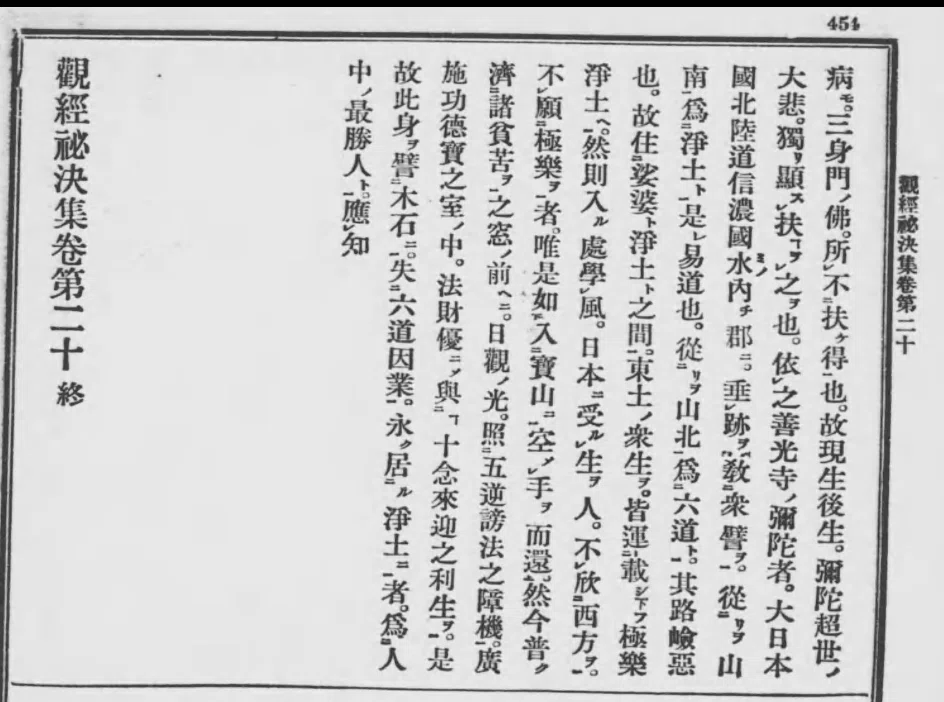 454
觀經祕決集卷第二十
病モ。三身門ノ佛。所レ不ニ扶ケ得一也。故現生後生。彌陀超世ノ
大悲。獨リ顯スレ扶コヲレ之ヲ也。依レ之善光寺ノ彌陀者。大日本
國北陸道信濃國水ミノ內チ郡ニ。垂レ跡ヲ敎ニ衆譬ヲ一。從ニリヲ山
南一爲ニ淨土ト一是レ易道也。從ニリヲ山北一爲ニ六道ト一。其路嶮惡
也。故住ニ娑婆ト淨土ト之間一。東土ノ衆生ヲ。皆運ニ載シテフ極樂
淨土ヘ一。然則入ル處學レ風。日本ニ受ルレ生ヲ人。不レ欣ニ西方ヲ一。
不レ願ニ極樂ヲ一者。唯是如下入ニ寶山ニ一空メレ手ヲ而還上。然今普ク
濟ニ諸貧苦ヲ一之窓ノ前ヘニ。日觀ノ光。照ニ五逆謗法之障機一。廣
施功德寶之室ノ中。法財優ニメ與ニコ十念來迎之利生ヲ一。是
故此身ヲ譬ニ木石ニ一。失ニ六道因業一。永ク居ニル淨土ニ一者。爲ニ人
中ノ最勝人ト一。應レ知
觀經祕決集卷第二十 終